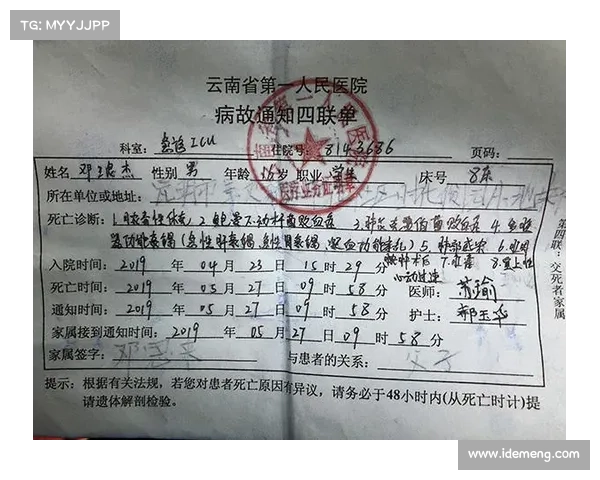 TG: MYYJJPP
云南省第一人民医院
病故通知四联单
科室: 急诊ICU 住院号 8143686 页码:
姓名 邓 杰 性别 男 年龄 岁 职业 学生 床号 8床
所在单位或地址:
死亡诊断: 1.感染性休克 2.鲍曼不动杆菌败血症 3.肺炎克雷伯菌败血症 4.多脏
器功能衰竭(急性肝衰竭, 急性肾衰竭, 凝血功能紊乱) 5. 6.
术后 7. 8.室上性
入院时间: 2019 年 04 月 23 日 15 时 29 分 心动过速
死亡时间: 2019 年 05 月 27 日 09 时 58 分 医师: 苏瑜
通知时间: 2019 年 05 月 27 日 09 时 58 分 护士: 郝玉
家属接到通知时间: 2019 年 05 月 27 日 09 时 58 分
家属签字: 邓 与患者的关系: 父子
提示: 根据有关法规,若您对患者死亡原因有异议,请务必于48小时内(从死亡时计)提
请遗体解剖检验。
第四联:交死者家属
www.idemeng.com